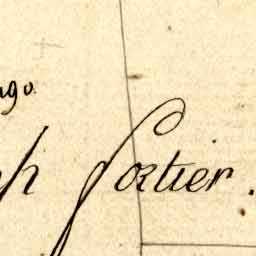 ngo
ph Fortier.